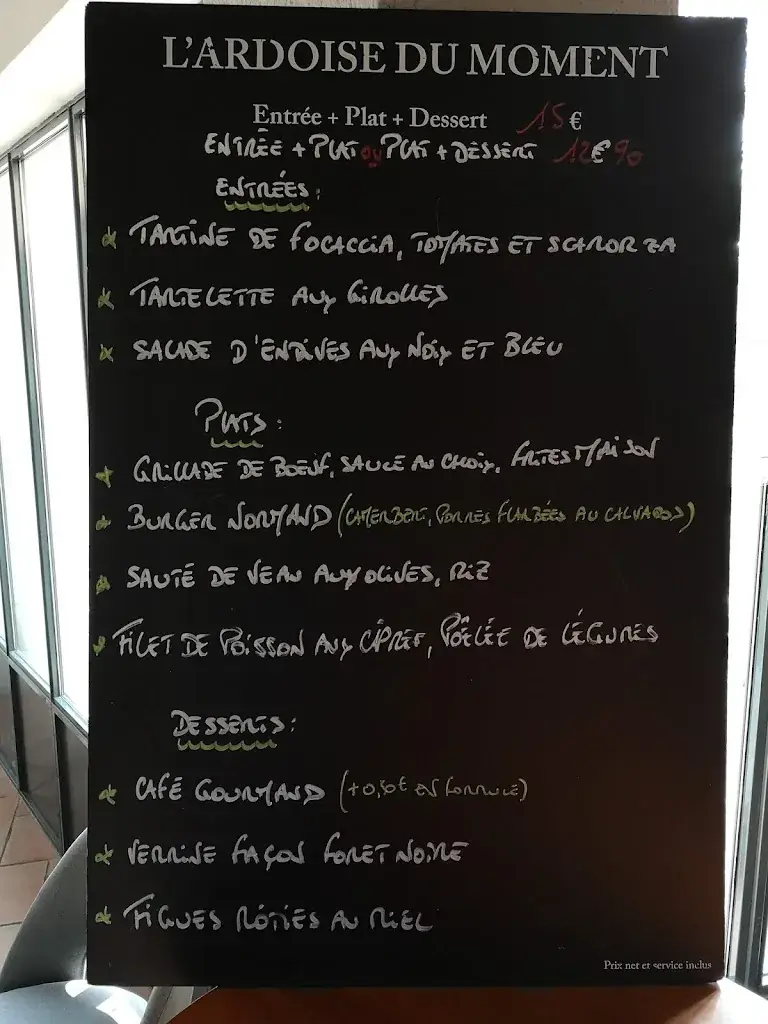 L'ARDOISE DU MOMENT
Entrée + Plat + Dessert 15€
ENTRÉE + PLAT ou PLAT + DESSERT 12€90
ENTRÉES :
TARTINE DE FOCACCIA, TOMATES ET SCAMORZA
TARTELETTE AUX GIROLLES
SALADE D'ENDIVES AUX NOIX ET BLEU
PLATS :
GRILLADE DE BOEUF, SAUCE AU CHOIX, FRITES MAISON
BURGER NORMAND (CAMEMBERT, POMMES FLAMBÉES AU CALVADOS)
SAUTÉ DE VEAU AUX OLIVES, RIZ
FILET DE POISSON AUX CÂPRES, POÊLÉE DE LÉGUMES
DESSERTS :
CAFÉ GOURMAND (+0,50€ EN FORMULE)
VERRINE FAÇON FORET NOIRE
FIGUES RÔTIES AU MIEL
Prix net et service inclus